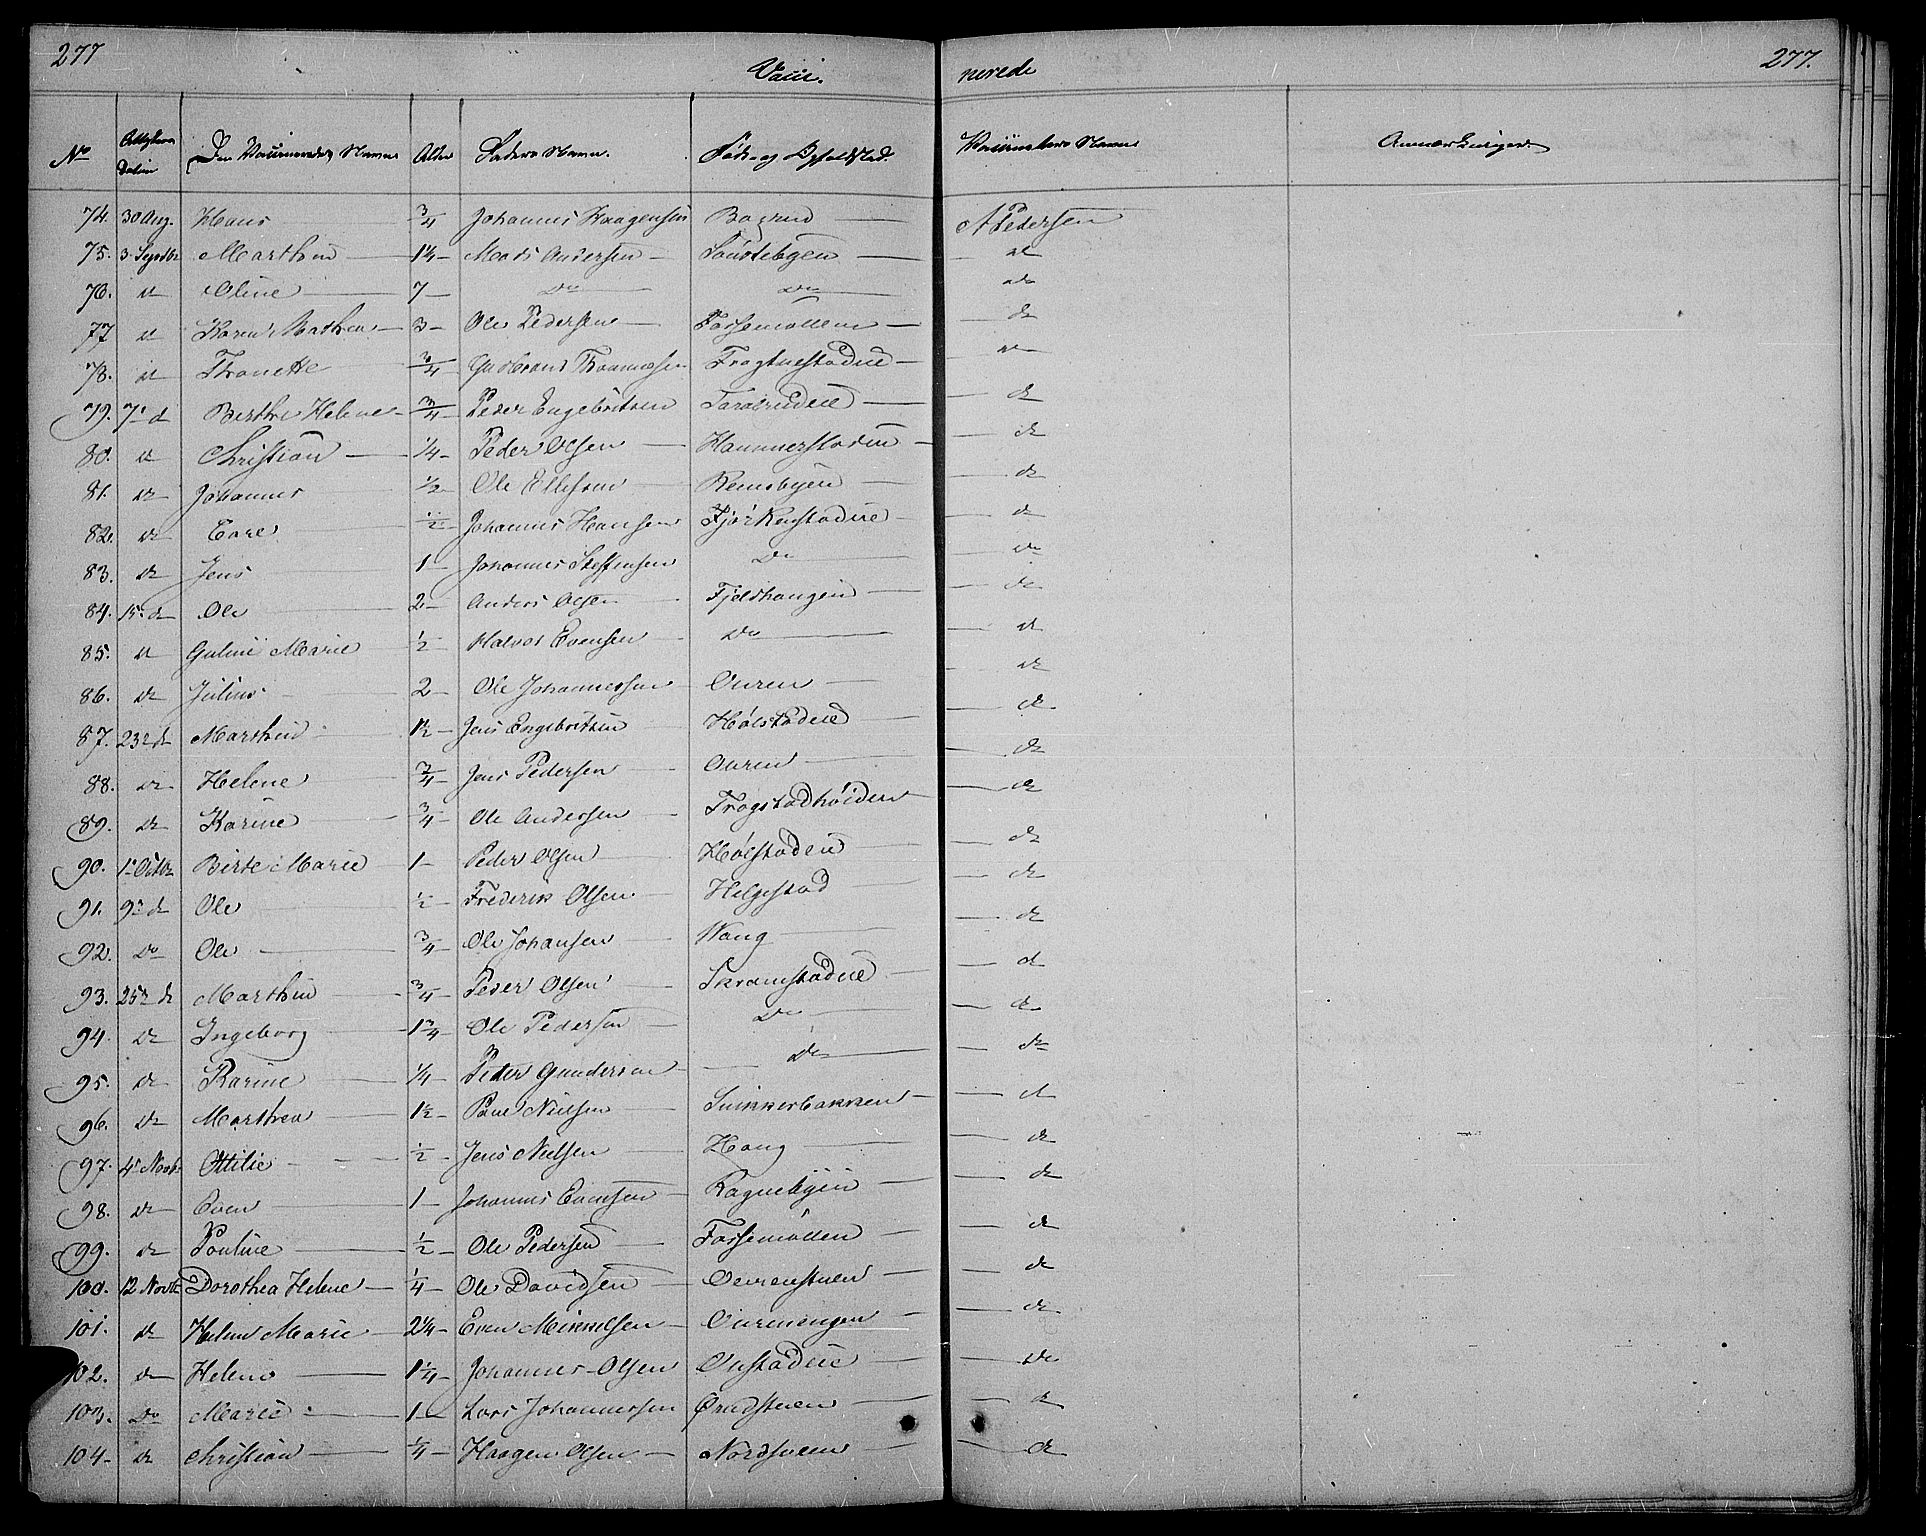 277 277.
Vacci. nerede
No Attestens Datum Den Vaccineredes Navn Alder Faders Navn. Føde og Opholdsted. Vaccinators Navn Anmærkninger
74. 30 Aug. Hans 3/4 Johannes Haagensen N Pedersen
75. 3 Septbr Marthea 1 1/4 Mads Andersen do
76. do Oline 7 Do Do do
77 do Karen Mathea 3 Ole Pedersen Fossemøllen do
78. do Thonette 3/4 do
79. 7 d Berthe Helene 3/4 Peder Engebritsen do
80. do Christian 1/4 Peder Olsen Hammerstadeie do
81. do Johannes 1/2 Ole Ellefsen do
82. do 1/2 Johannes Hansen do
83. do Jens 1 Johannes Steffensen Do do
84. 15 do Ole 2 Anders Olsen Fjeldhaugen do
85. do Guline Marie 1/2 Halvor Evensen Do do
86. do Julius 2 Ole Johannessen Ouren do
87. 23 do Marthea 1 1/2 Jens Engebritsen Hølstadeie do
88. do Helene 3/4 Jens Pedersen Ouren do
89. do Karine 3/4 Ole Andersen Frogstadhøiden do
90. 1 Octbr Birte Marie 1 Peder Olsen Hølstadeie do
91. 9 do Ole 1/2 Frederik Olsen Helgestad do
92. Do Ole 3/4 Ole Johansen Wang do
93. 25 do Marthea 3/4 Peder Olsen Skramstadeie do
94. do Ingeborg 1 3/4 Ole Pedersen Do do
95. do Karine 1/4 Peder Gundersen Do do
96. do Marthea 1 1/2 Paul Nielsen Snikkerbakken do
97. 4 Novbr Ottilie 1/2 Jens Nielsen Haug do
98. do Even 1 Johannes Evensen do
99. do Pouline 1/2 Ole Pedersen Fossemøllen do
100. 12 Novbr Dorothea Helene 1/4 Ole Davidsen Ourenstuen do
101. do Helene Marie 2 1/4 Even Mikkelsen Ourenengen do
102. do Helene 1 1/4 Johannes Olsen Onstadeie Do
103. Do Marie 1 Lars Johannessen do
104 do Christian 1/4 Haagen Olsen Nordstuen do